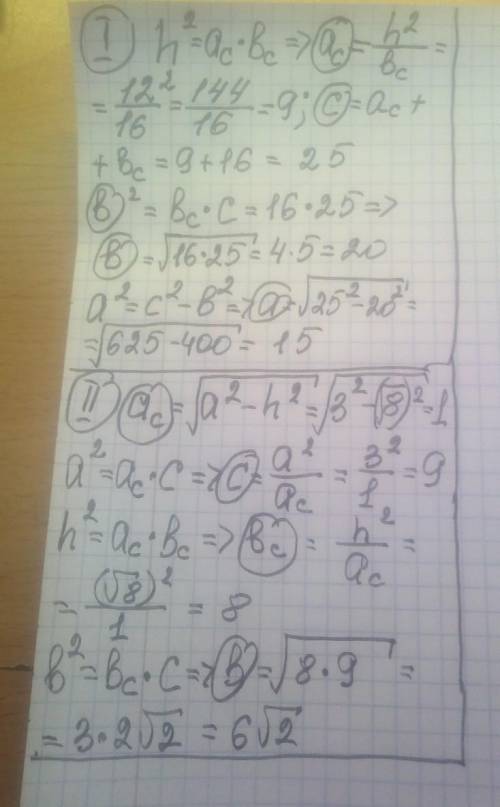 I h² = a_c · b_c => a_c = h²/b_c =
= 12²/16 = 144/16 = 9; c = a_c +
+ b_c = 9 + 16 = 25
b² = b_c · c = 16 · 25 =>
b = √(16·25) = 4·5 = 20
a² = c² - b² => a = √(25² - 20²) =
= √(625 - 400) = 15
II a_c = √(a² - h²) = √(3² - (√8)²) = 1
a² = a_c · c => c = a²/a_c = 3²/1 = 9
h² = a_c · b_c => b_c = h²/a_c =
= (√8)²/1 = 8
b² = b_c · c => b = √(8·9) =
= 3·2√2 = 6√2